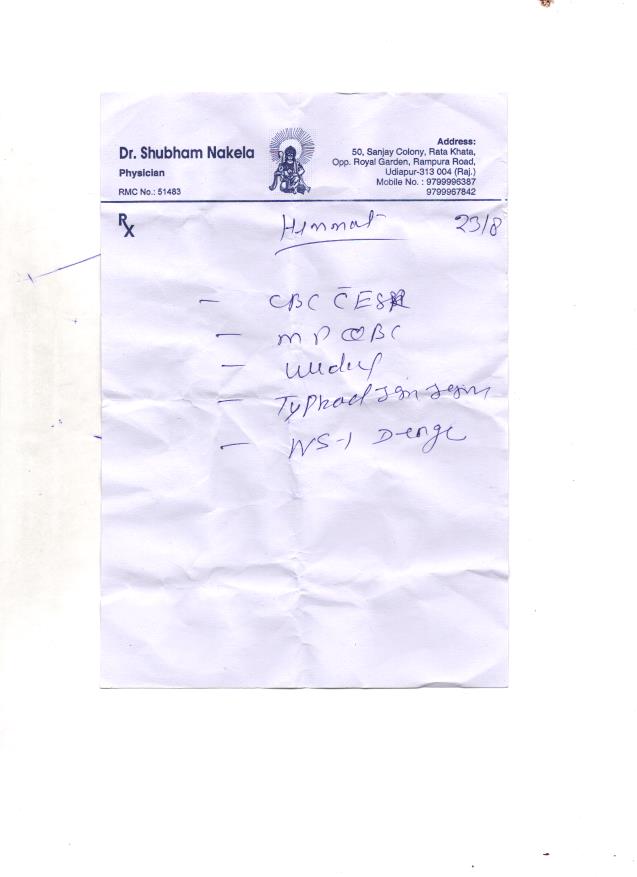 Dr. Shubham Nakela
Physician
RMC No.: 51483
Address:
50, Sanjay Colony, Rata Khata,
Opp. Royal Garden, Rampura Road,
Udiapur-313 004 (Raj.)
Mobile No. : 9799996387
9799967842
Rx
Himmat 23/8
- CBC C̄ ESR
- MP QBC
-
- Typhoid IgM
- NS-1 Denge